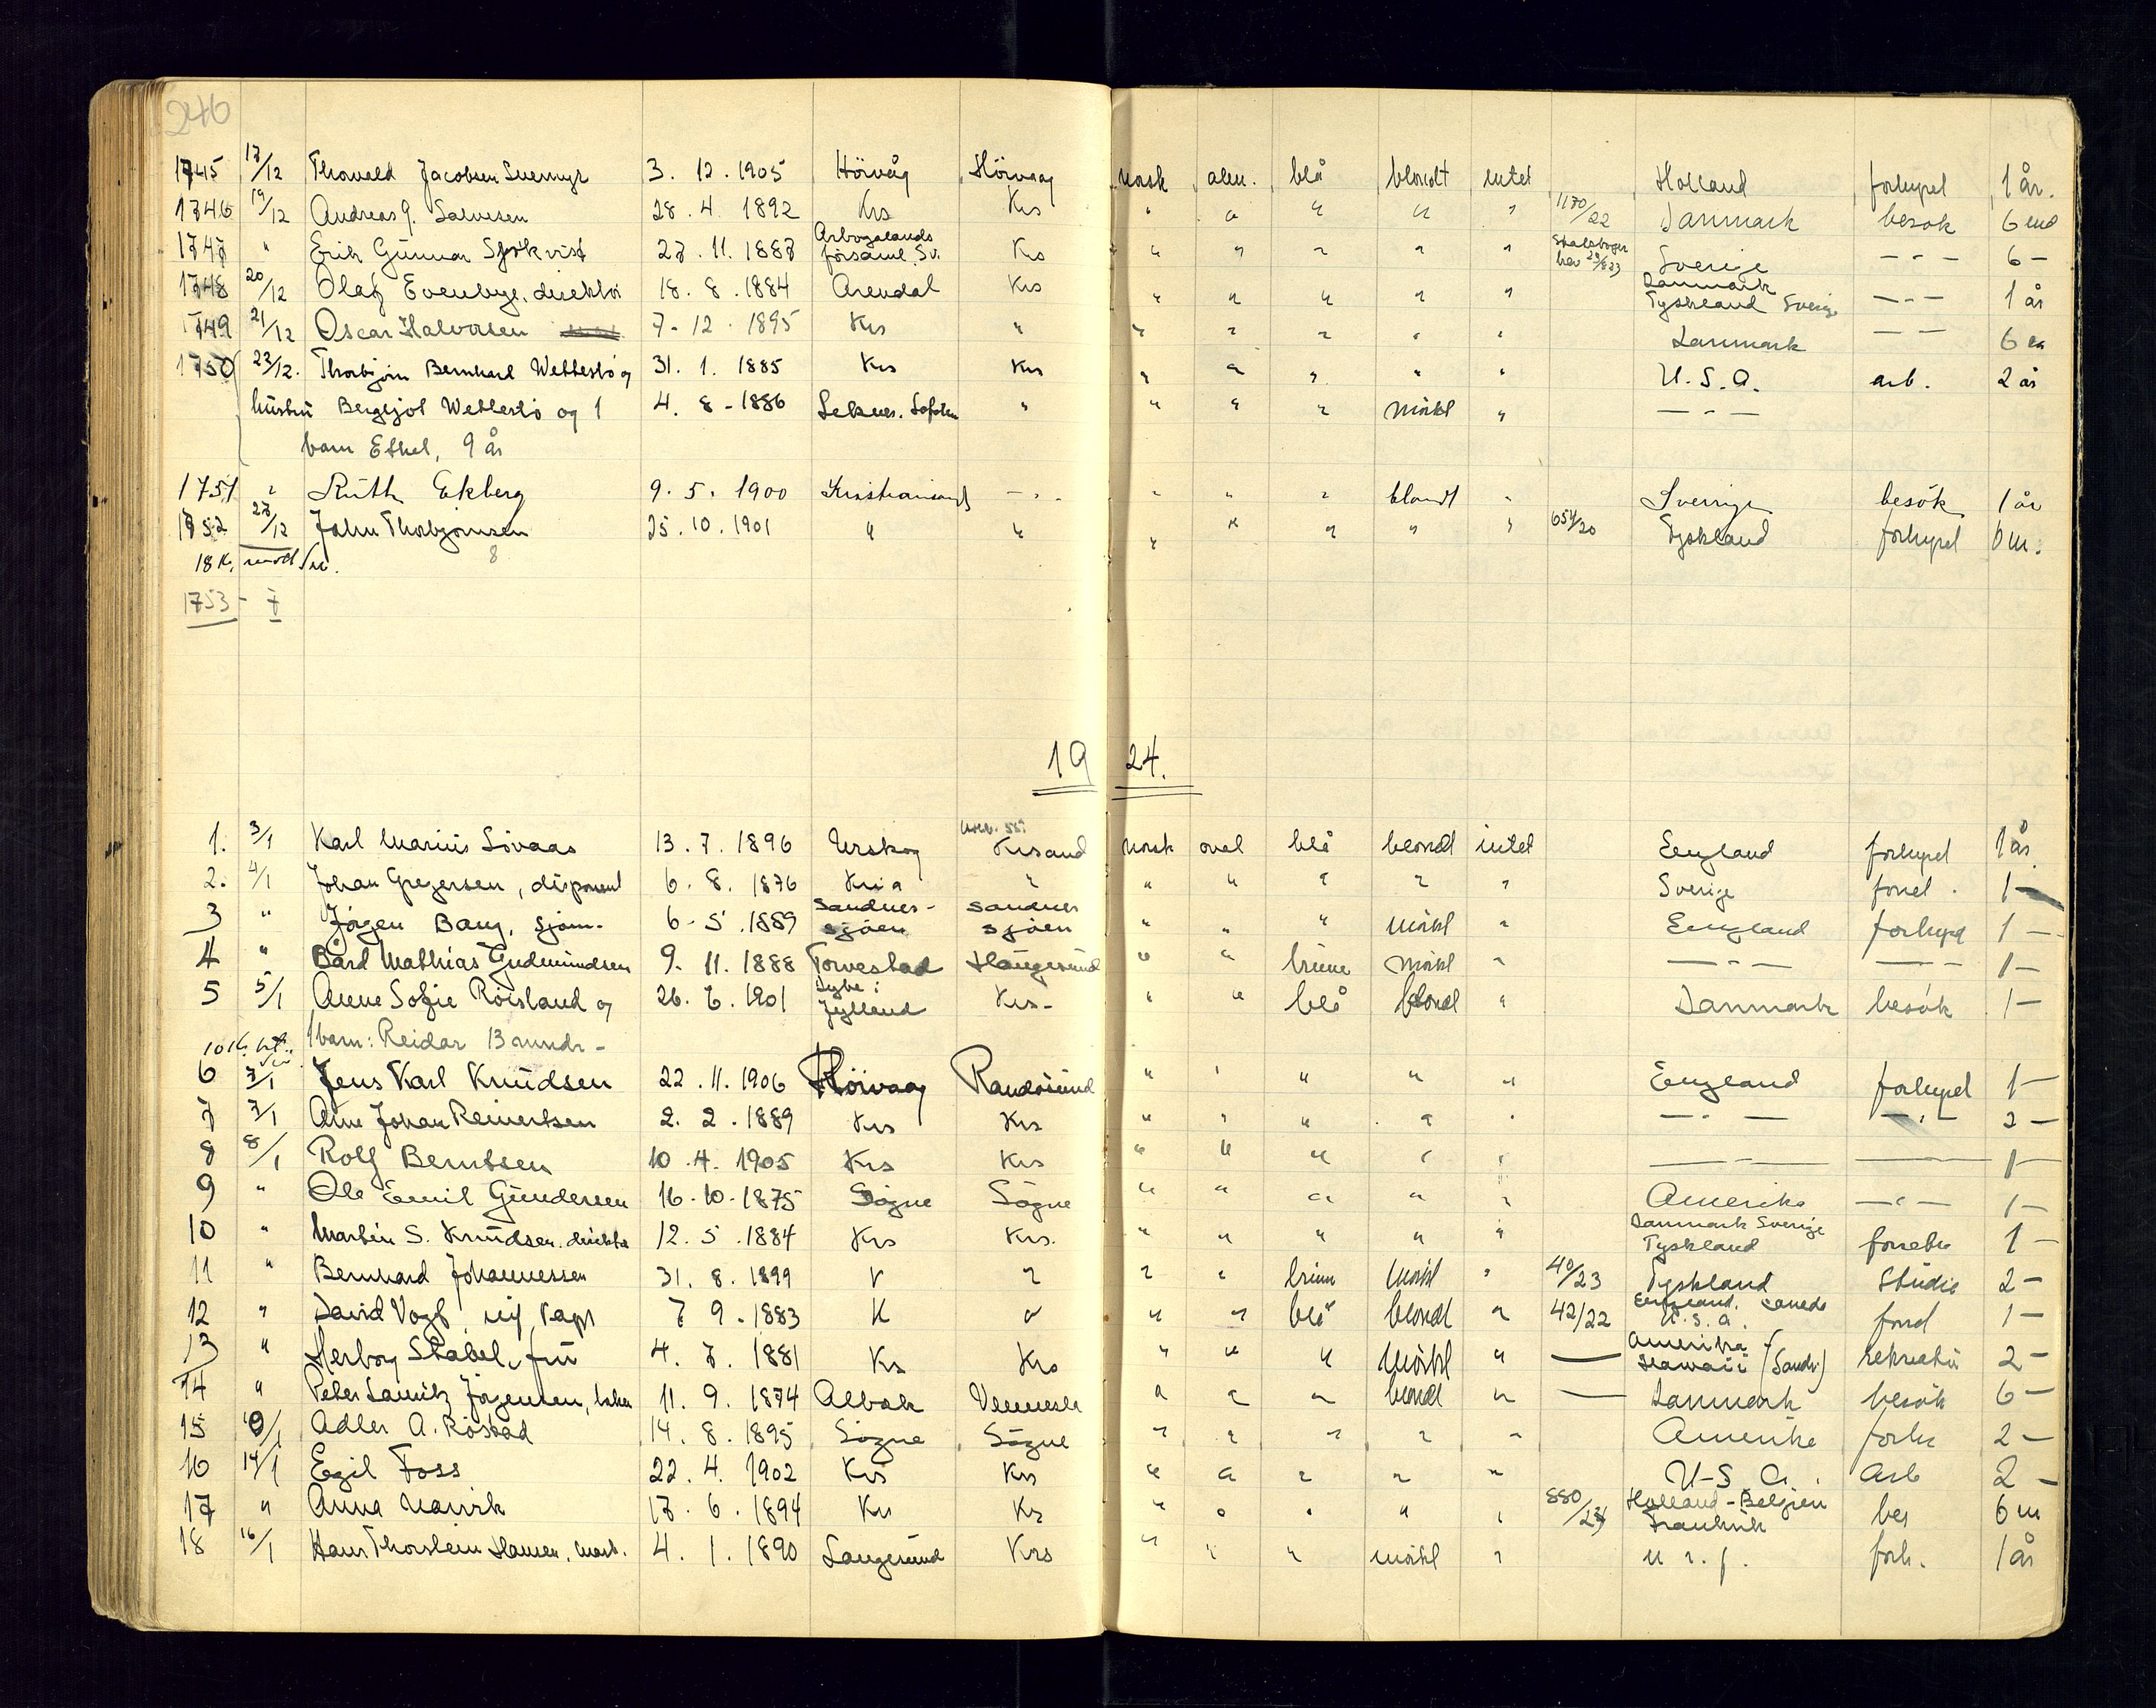 246
1745 17/12 Thorvald Jacobsen 3. 12. 1905 Hövåg Hövaag norsk alm. blå blondt intet Holland forhyret 1 år.
1746 19/12 Andreas J. Salvesen 28. 4. 1892 Krs Krs " " " " " 1170/22 Danmark besøk 6 md
1747 " Erik Gunnar Sjökvist 27. 11. 1887 Arbogalands församl. Sv. Krs " " " " " Sverige — " — 6 —
1748 20/12 Olaf Evenbye, direktör 18. 8. 1884 Arendal Krs " " " " " Danmark Tyskland Sverige — " — 1 år
1749 21/12 Oscar Halvorsen 7 - 12 - 1895 Krs " " " " " " Danmark — " — 6 m
1750 22/12. Thorbjörn Bernhard Wettestö og 31. 1. 1885 Krs Krs " " " " " U. S. A. arb. 2 år
hustru Bergljot Wettestö og 1 4. 8 - 1886 Leknes. Lofoten " " " " mörkt " — " —
barn Ethel, 9 år
1751 " Ruth Ekberg 9. 5. 1900 Kristiansand — " — " " " blondt " Sverrige besök 1 år
1752 27/12 John Thorbjörnsen 25. 10. 1901 " " " " " " " 654/20 Tyskland forhyret 6 m.
18 K.
8
1753 - 7
1924.
1. 3/1 Karl Marius Lövaas 13. 7. 1896 Urskog Krsand norsk oval blå blondt intet England forhyret 1 år
2. 4/1 Johan Gregersen, disponent 6. 8. 1876 Kria " " " " " " Sverige forret. 1 —
3 " Jörgen Bang, sjöm. 6 - 5. 1889 Sandnessjöen Sandnessjöen " " " mörkt " England forhyret 1 —
4 " Bård Mathias Gudmundsen 9. 11. 1888 Torvestad Haugesund " " brune mörkt " — " — — " — 1 —
5 5/1 Anne Sofie Röisland og 26. 6. 1901 Lybe: Jylland Krs - " " blå blondt " Danmark besök 1 —
1 barn: Reidar 13 mndr -
6 7/1 Jens Karl Knudsen 22. 11. 1906 Hövaag Randösund " " " " " England forhyret 1 —
7 7/1 Arne Johan Reinertsen 2. 2. 1889 Krs Krs " " " " " — " — — " — 2 —
8 8/1 Rolf Berntsen 10. 4. 1905 Krs Krs " " " " " — — 1 —
9 " Ole Emil Gundersen 16 - 10 - 1875 Sögne Sögne " " " " " Amerika — " — 1 —
10 " Martin S. Knudsen. direktör 12. 5. 1884 Krs Krs. " " " " " Danmark Sverige Tyskland forretn 1 —
11 " Bernhard Johannessen 31. 8. 1899 " " " " brun mörkt " 40/23 Tyskland Studie 2 —
12 " David Vogt, 7 9 - 1883 K " " " blå blondt " 42/22 England, Canada U. S. A. forret 1 —
13 " Herborg Stabel, fru 4. 7. 1881 Krs Krs " " " mörkt " — Amerika - Hawaii (Sandw) rekreation 2 —
14 " Peter Lauritz Jörgensen, 11. 9. 1874 Albæk Vennesla " " " blondt " — Danmark besök 6 —
15 10/1 Adler A. Röstad 14. 8. 1895 Sögne Sögne " " " " " Amerika forh 2 —
16 14/1 Egil Foss 22. 4. 1902 Krs Krs " " " " " U - S. A. Arb 2 —
17 " Anna Narvik 17. 6. 1894 Krs Krs " " " " " 880/23 Holland - Belgien Frankrik bes 6 m
18 16/1 Hans Thorstein Hansen, mask. 4. 1. 1890 Langesund Krs " " " mörkt " forh. 1 år